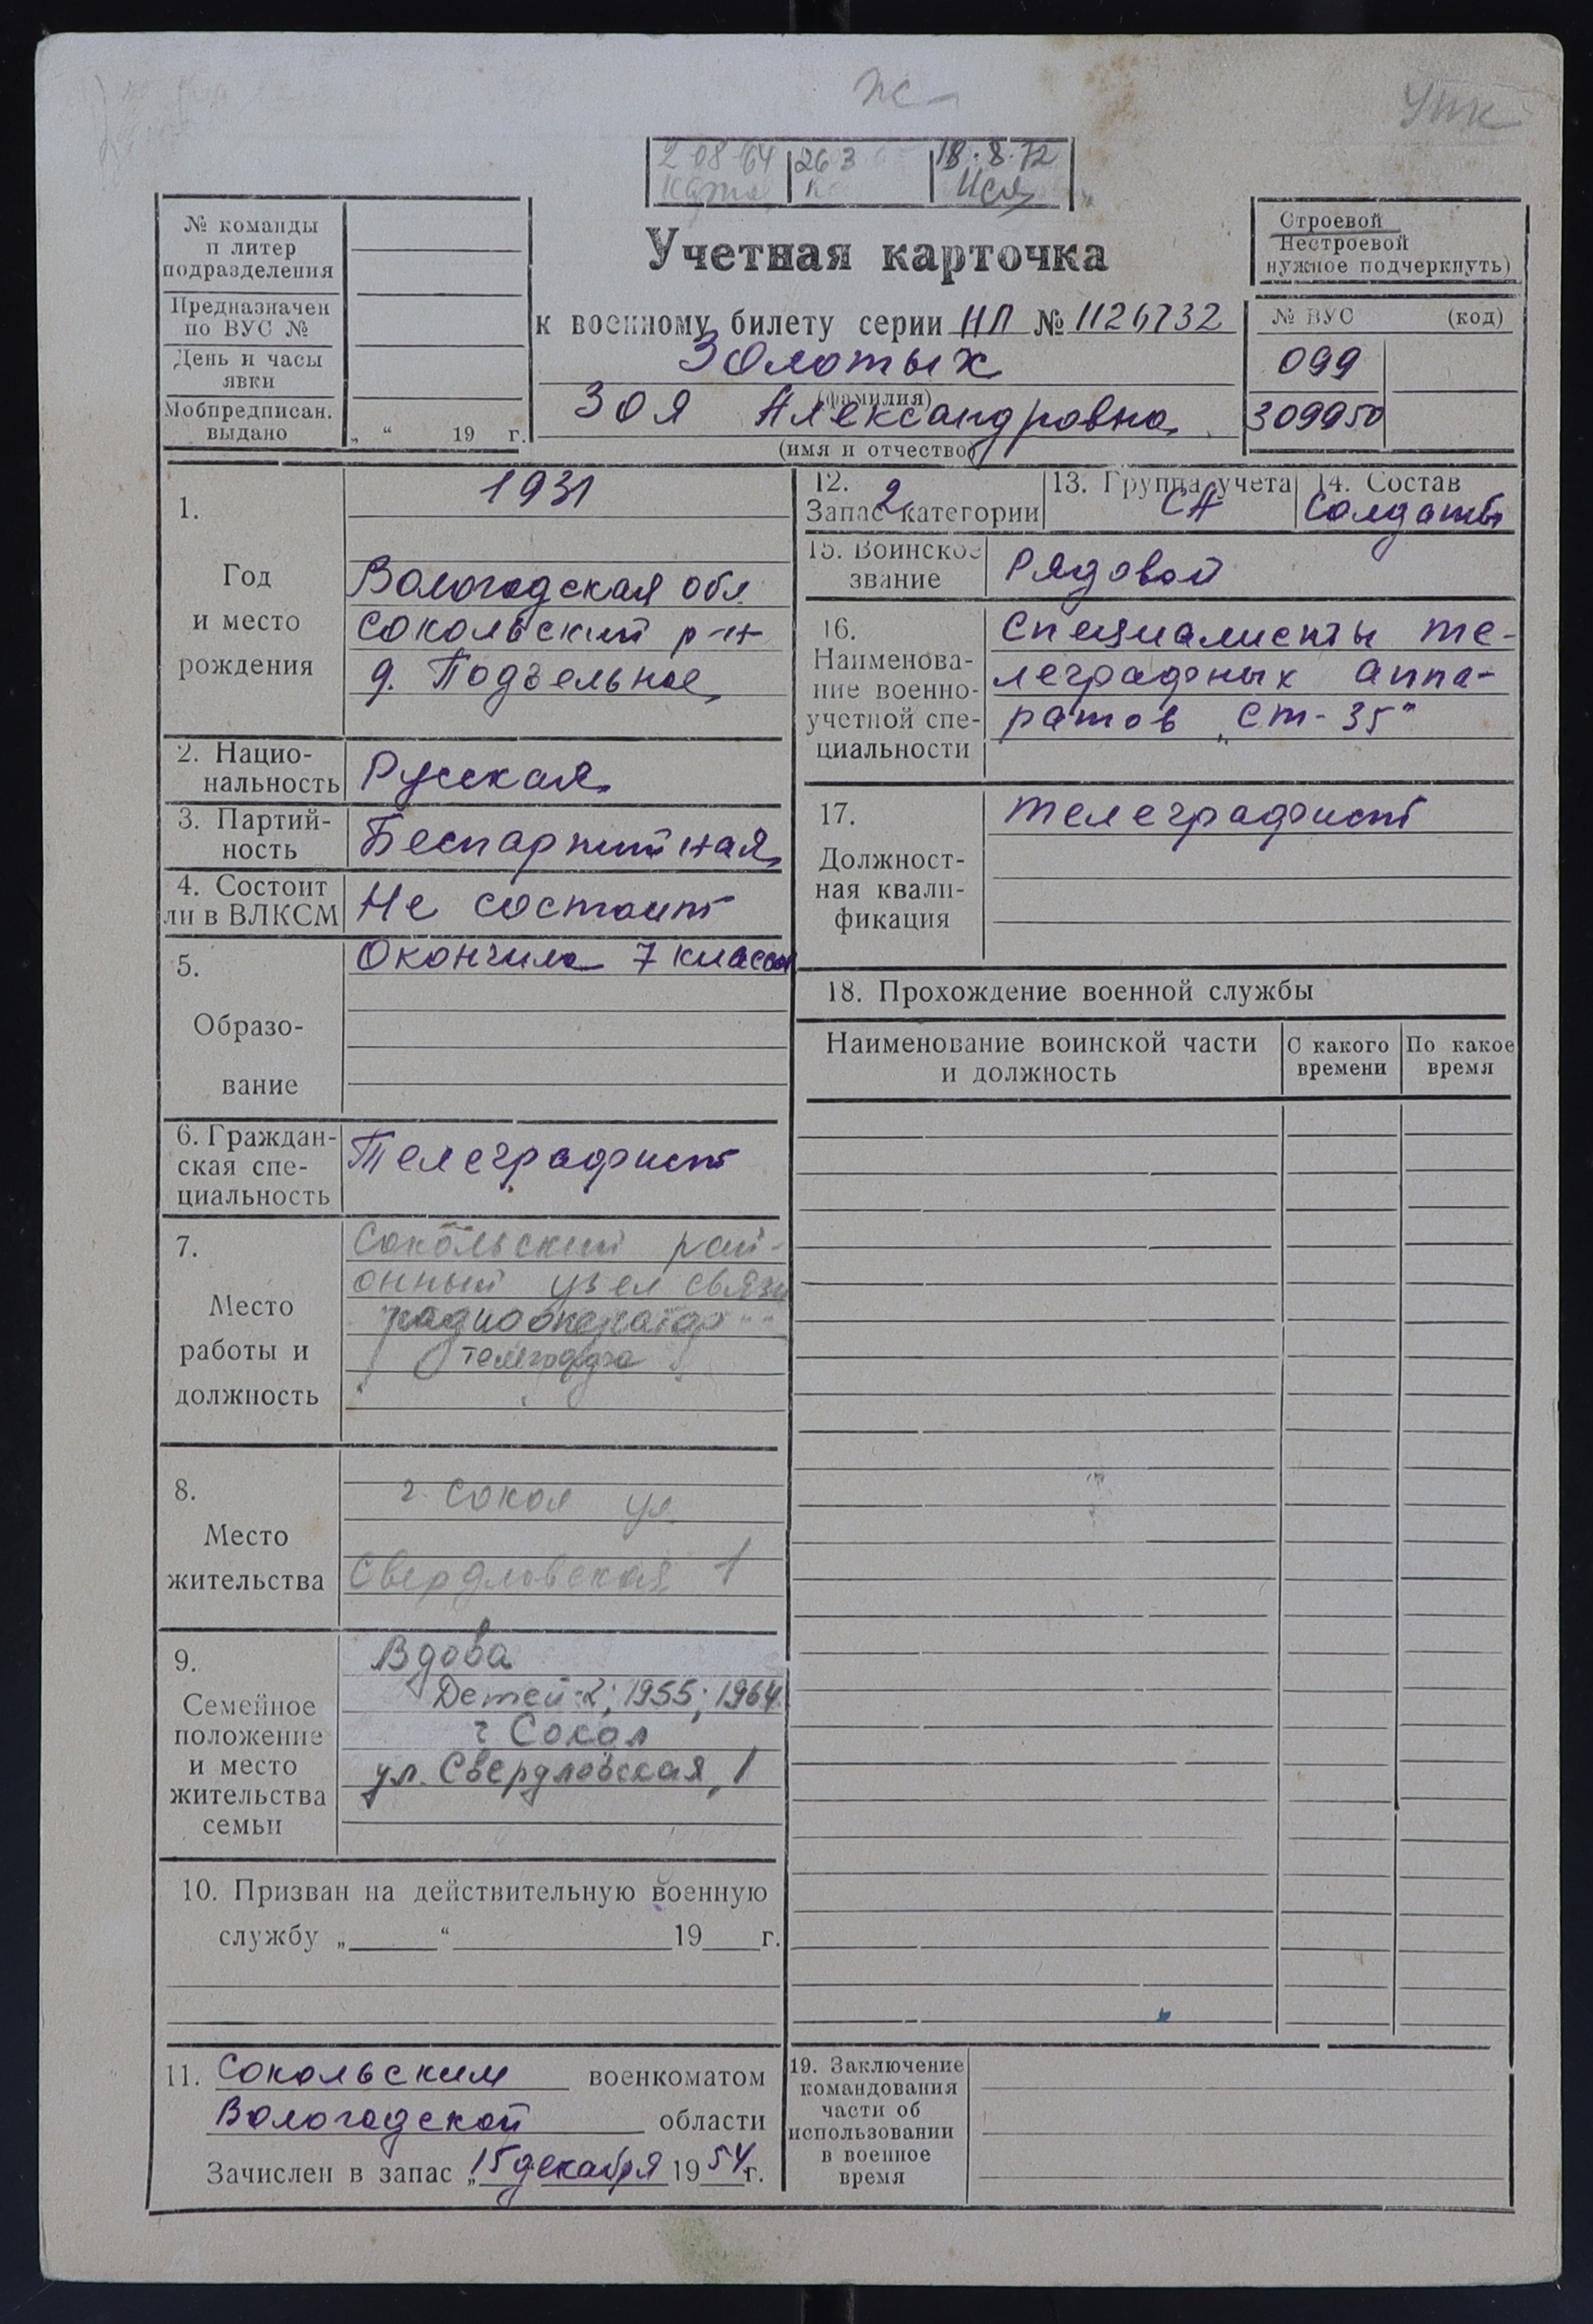 Ж
УПК
2 08 64
26 3
18.8.72
№ команды
и литер
подразделения
Предназначен
по ВУС №
День и часы
явки
Мобпредписан.
выдано
„ “ 19 г.
Учетная карточка
к военному билету серии НЛ № 1126732
Золотых
(фамилия)
Зоя Александровна
(имя и отчество)
Строевой
Нестроевой
нужное подчеркнуть)
№ ВУС (код)
099
309950
1.
Год
и место
рождения
1931
Вологодская обл
Сокольский р-н
д. Подзельное
2. Нацио-
нальность
Русская
3. Партий-
ность
Беспартийная
4. Состоит
ли в ВЛКСМ
Не состоит
5.
Образо-
вание
Окончила 7 классов
6. Граждан-
ская спе-
циальность
Телеграфист
7.
Место
работы и
должность
Сокольский рай-
онный узел связи
радиооператор
телеграфа
8.
Место
жительства
г. Сокол ул
Свердловская 1
9.
Семейное
положение
и место
жительства
семьи
Вдова
Детей-2; 1955; 1964
г Сокол
ул. Свердловская, 1
10. Призван на действительную военную
службу „ “ 19 г.
11. Сокольским военкоматом
Вологодской области
Зачислен в запас „15 декабря 1954г.
12.
Запас 2 категории
13. Группа учета
СА
14. Состав
Солдаты
15. Воинское
звание
Рядовой
16.
Наименова-
ние военно-
учетной спе-
циальности
Специалисты те-
леграфных аппа-
ратов „Ст-35"
17.
Должност-
ная квали-
фикация
Телеграфист
18. Прохождение военной службы
Наименование воинской части
и должность
С какого
времени
По какое
время
19. Заключение
командования
части об
использовании
в военное
время